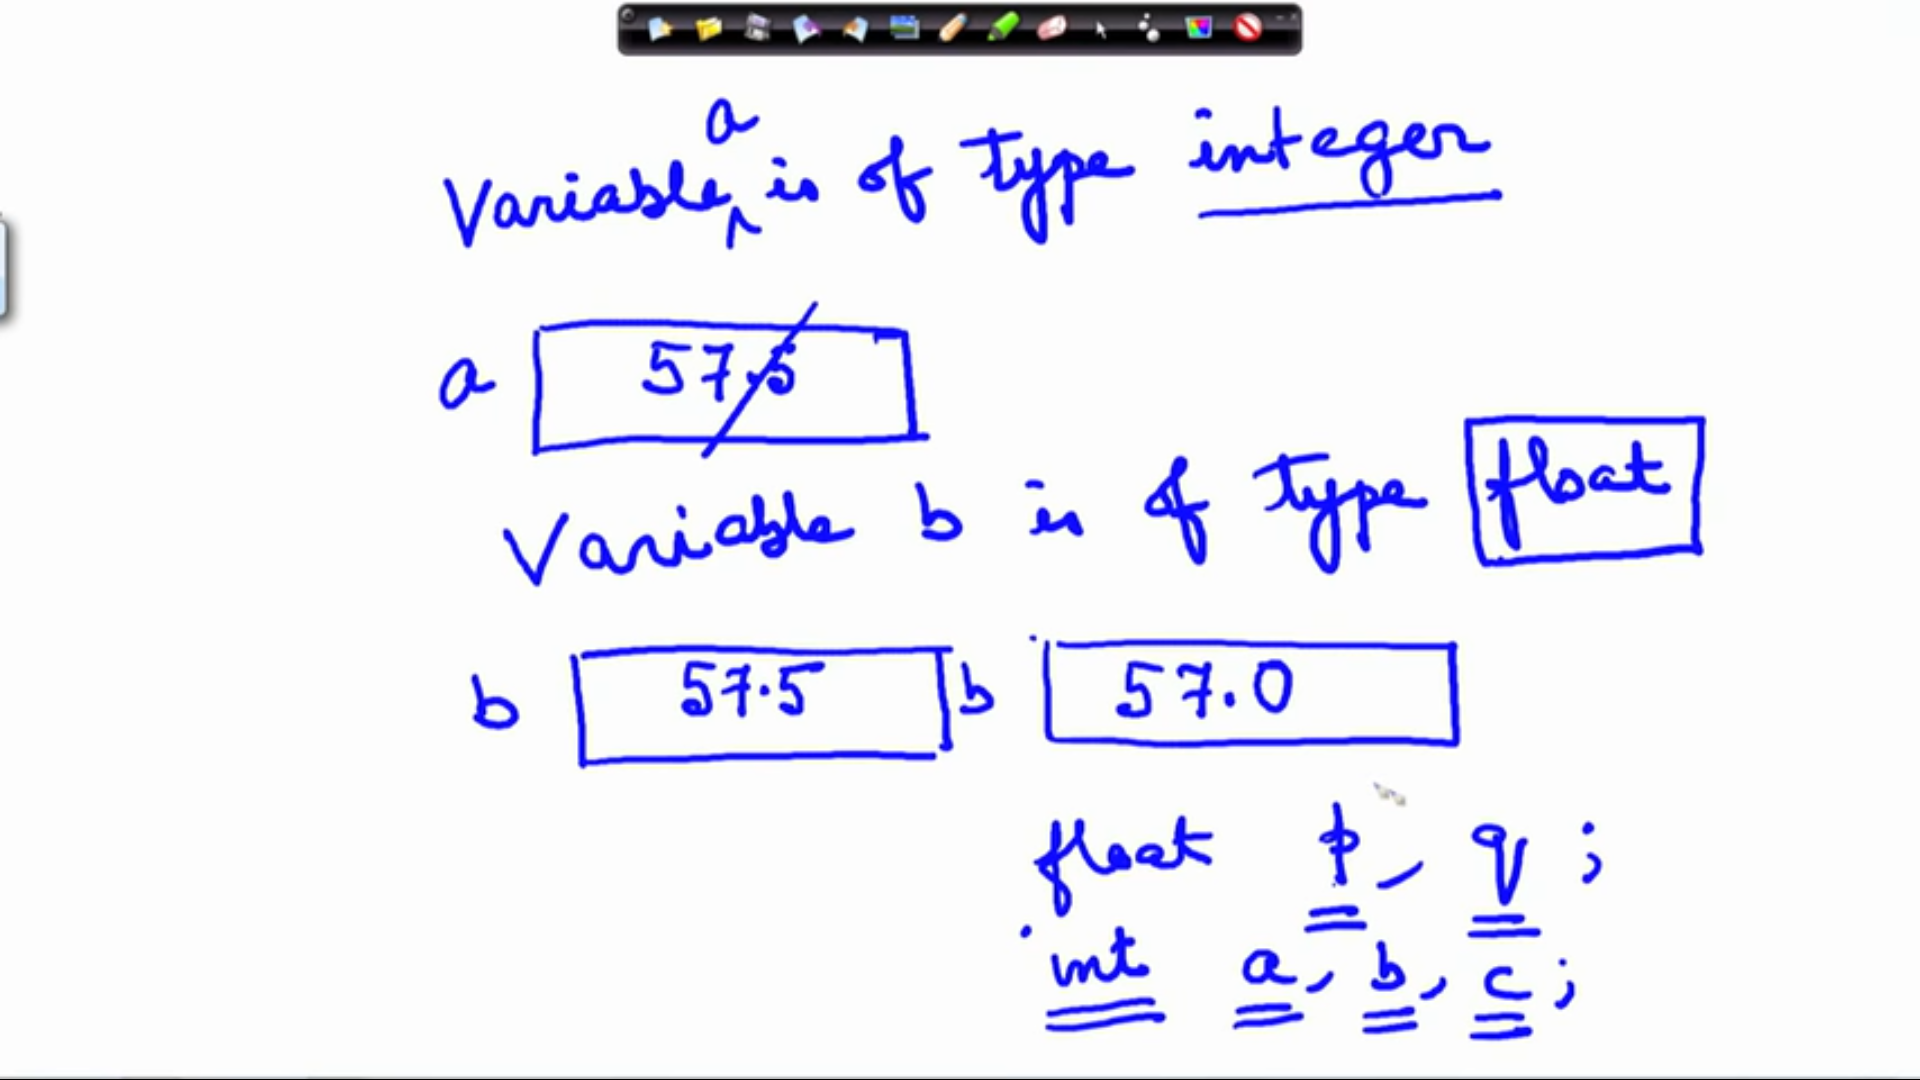 Variable a is of type integer
a 57.5
Variable b is of type float
b 57.5 b 57.0
float p, q ;
int a, b, c ;